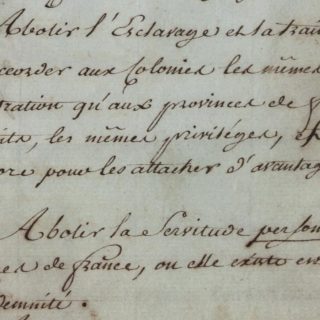 Abolir l'Esclavage et la trai
ccorder aux Colonies les mêmes
tration qu'aux provinces de f
les mêmes priviléges, e
ore pour les attacher d'avantag
Abolir la Servitude person
es de france, ou elle existe en
demnité.